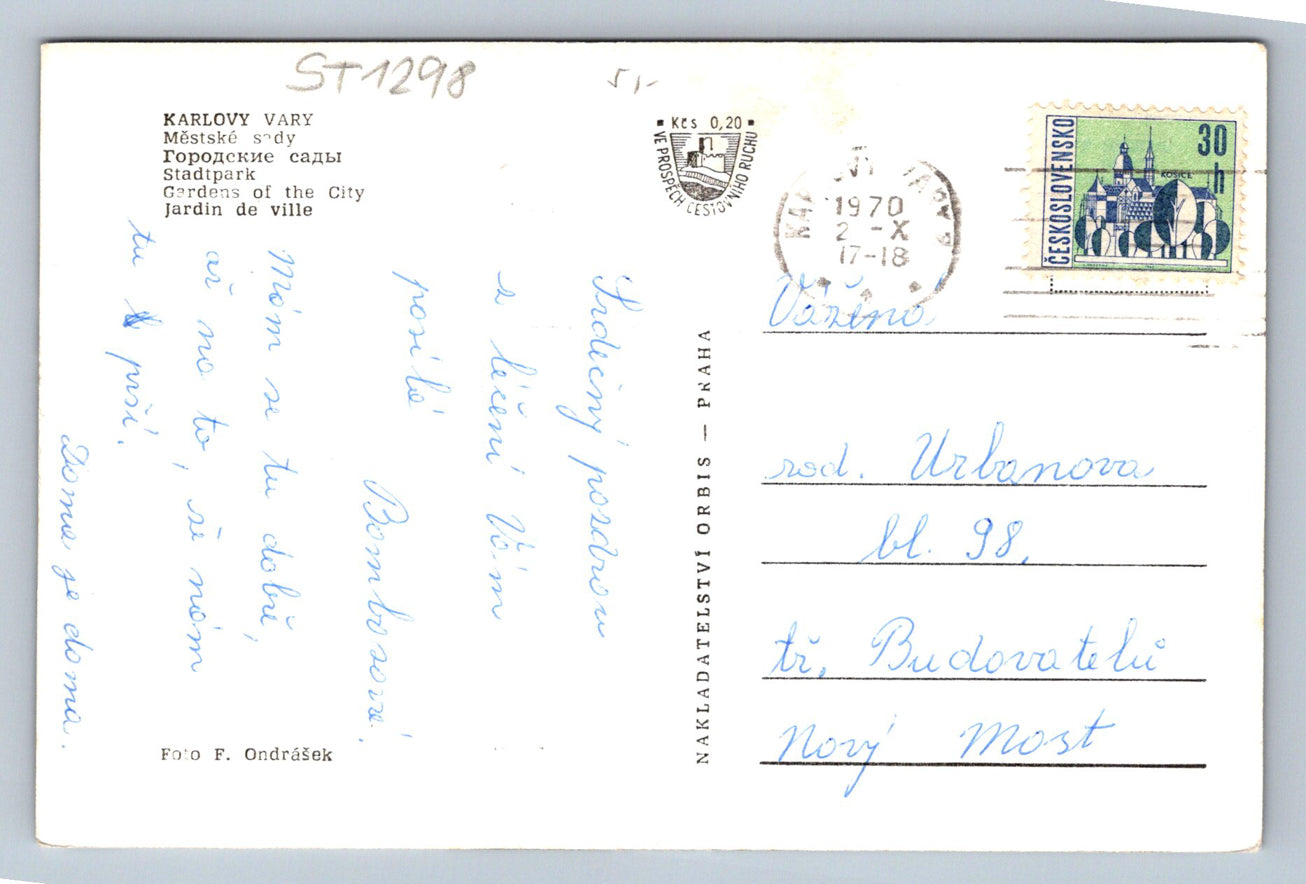 ST1298
5,-
KARLOVY VARY
Městské sady
Городские сады
Stadtpark
Gardens of the City
Jardin de ville
Kčs 0,20
VE PROSPĚCH CESTOVNÍHO RUCHU
KARLOVY VARY
1970
2 -X
17-18
ČESKOSLOVENSKO
30 h
KOŠICE
Srdečný pozdrav
z léčení Vám
posílá
Mám se tu dobře,
až na to, že nám
tu prší.
Doma je doma.
NAKLADATELSTVÍ ORBIS — PRAHA
Vážená
rod. Urbanova
bl. 98,
tř. Budovatelů
Nový Most
Foto F. Ondrášek